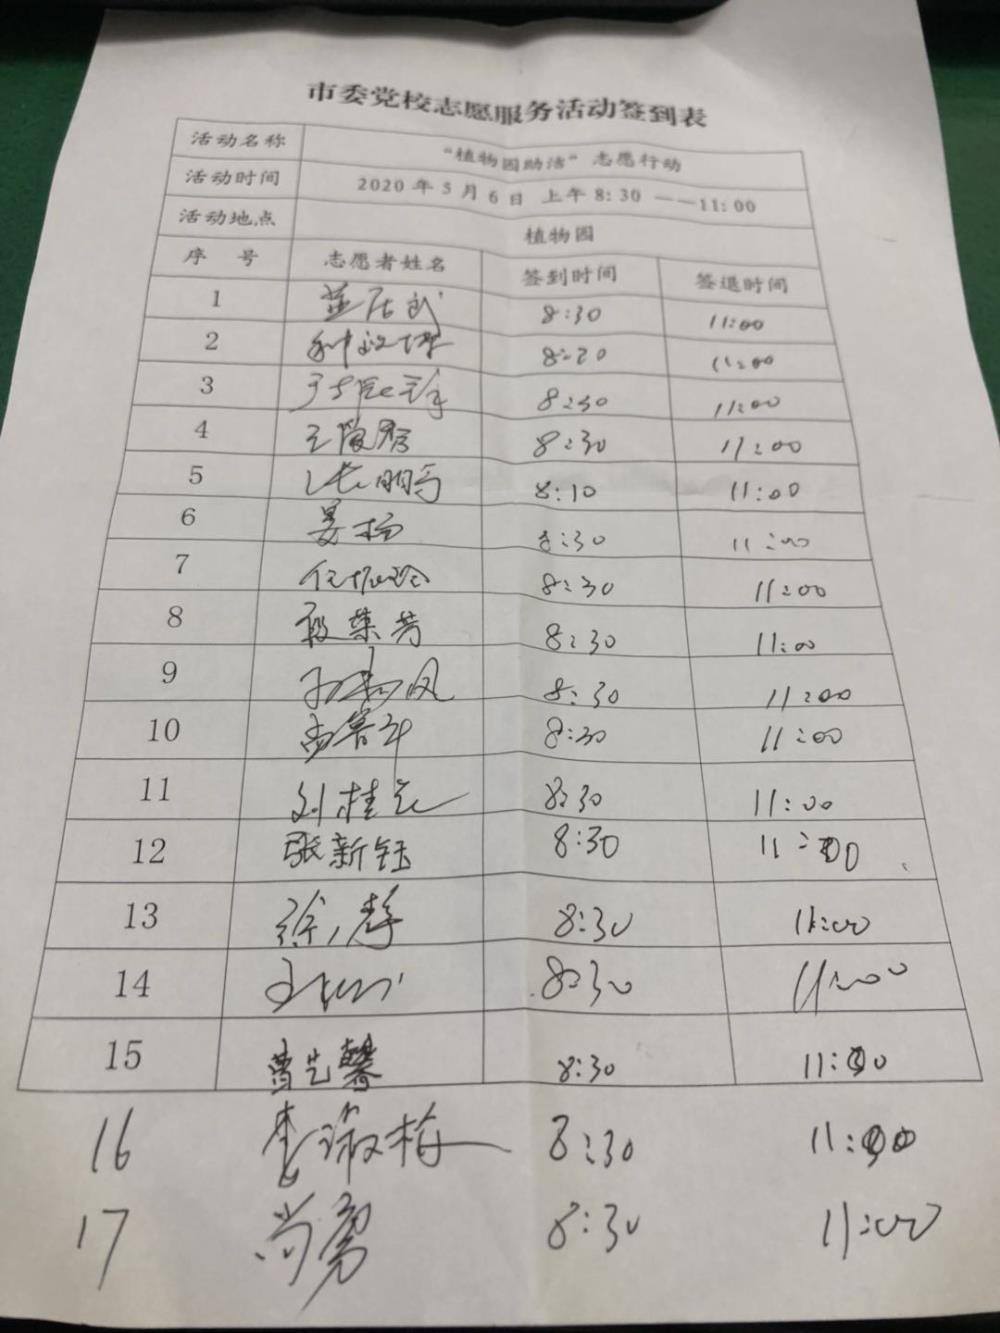 市委党校志愿服务活动签到表
活动名称 “植物园助洁”志愿行动
活动时间 2020年5月6日 上午8:30 ——11:00
活动地点 植物园
序 号 志愿者姓名 签到时间 签退时间
1 8:30 11:00
2 11:00
3 8:30 11:00
4 8:30 11:00
5 张鹏 8:10 11:00
6 姜杨 8:30 11:00
7 8:30 11:00
8 段荣芳 8:30 11:00
9 8:30 11:00
10 8:30 11:00
11 刘桂 8:30 11:00
12 张新钰 8:30 11:00
13 徐静 8:30 11:00
14 8:30 11:00
15 曹艺馨 8:30 11:00
16 李淑梅 8:30 11:00
17 尚勇 8:30 11:00